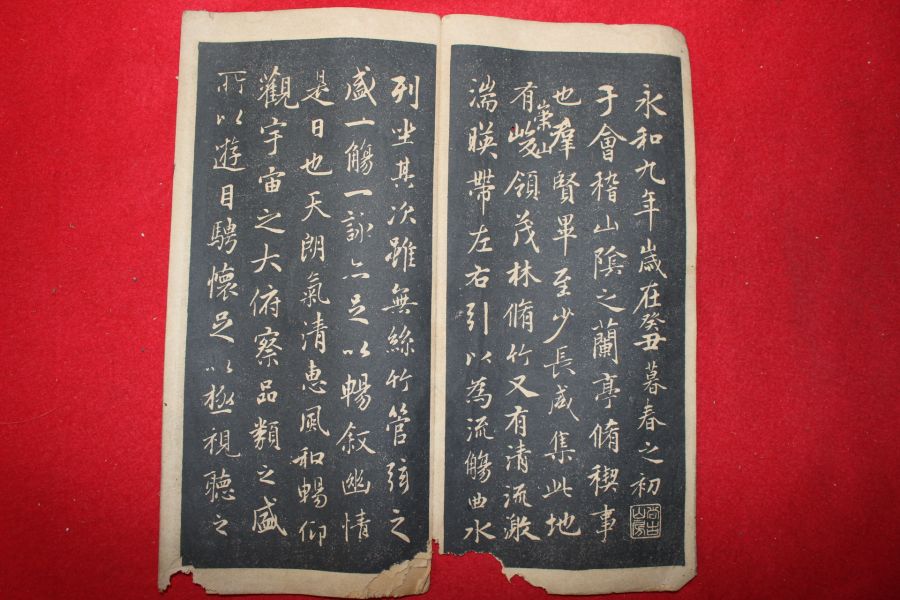 永和九年歲在癸丑暮春之初
尚古山房
于會稽山陰之蘭亭脩稧事
也羣賢畢至少長咸集此地
有崇山峻領茂林脩竹又有清流激
湍暎帶左右引以為流觴曲水
列坐其次雖無絲竹管弦之
盛一觴一詠亦足以暢叙幽情
是日也天朗氣清惠風和暢仰
觀宇宙之大俯察品類之盛
所以遊目騁懷足以極視聽之